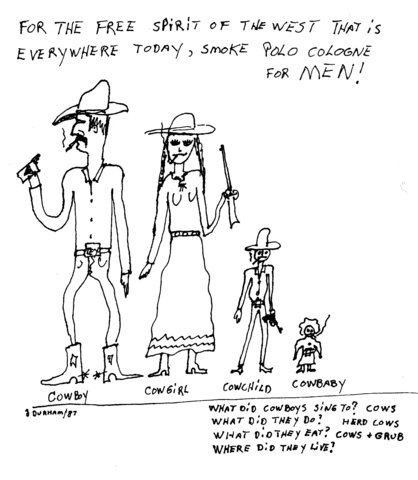 FOR THE FREE SPIRIT OF THE WEST THAT IS
EVERYWHERE TODAY, SMOKE POLO COLOGNE
FOR MEN!
COWBOY
COWGIRL
COWCHILD
COWBABY
J DURHAM/87
WHAT DID COWBOYS SING TO? COWS
WHAT DID THEY DO? HERD COWS
WHAT DID THEY EAT? COWS + GRUB
WHERE DID THEY LIVE?